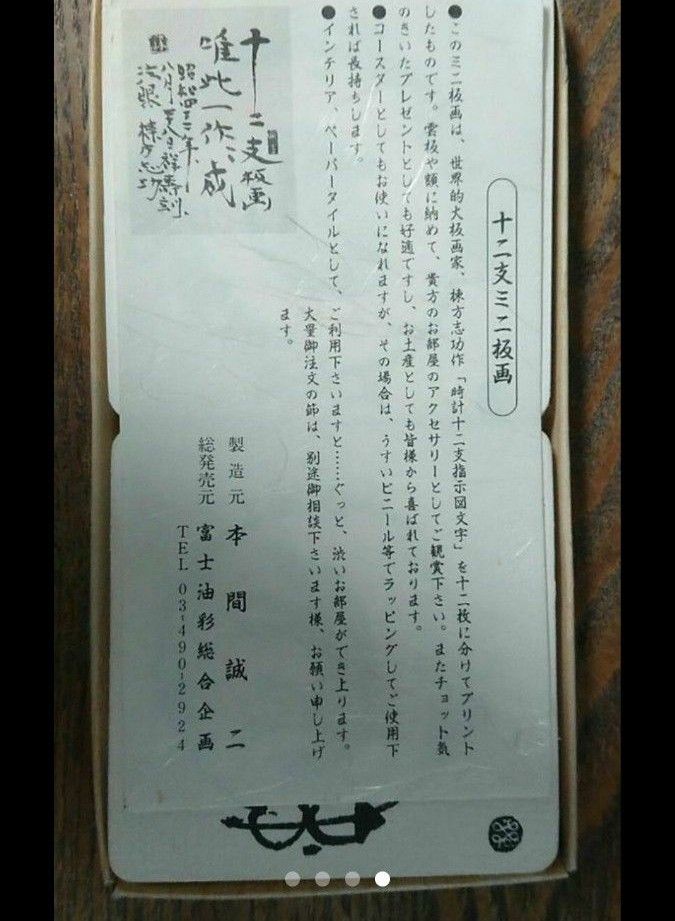 十二支ミニ板画
●このミニ板画は、世界的大板画家、棟方志功作「時計十二支指示図文字」を十二枚に分けてプリント
したものです。雲板や額に納めて、貴方のお部屋のアクセサリーとしてご観賞下さい。またチョット気
のきいたプレゼントとしても好適ですし、お土産としても皆様から喜ばれております。
●コースターとしてもお使いになれますが、その場合は、うすいビニール等でラッピングしてご使用下
されば長持ちします。
●インテリア、ペーパータイルとして、ご利用下さいますと……ぐっと、渋いお部屋ができ上ります。
大量御注文の節は、別途御相談下さいます様、お願い申し上げ
ます。
製造元 本間誠二
総発売元 富士油彩総合企画
TEL 03-490-2924
十二支板画
唯此一作、成
法眼 棟方志功